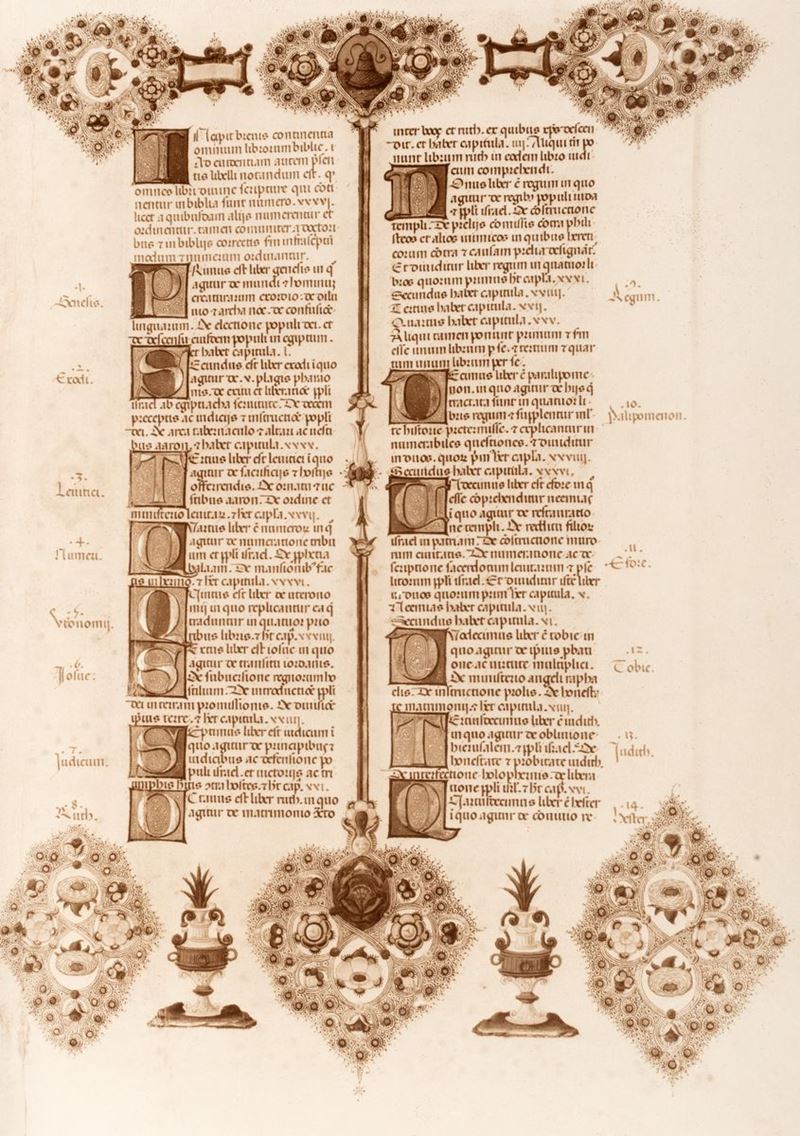 Incipit breuis continentia
omnium librorum biblie. i
Ad euidentiam autem p̃sen
tis libelli notandum est. q̱
omnes libri diuine scripture qui cõti
nentur in biblia sunt numero. xxxvi.
licet a quibusdam alijs numerentur et
ordinentur. tamen comuniter a doctori
bus ⁊ in biblijs correctis s̃m infrascriptũ
modum ⁊ numerum ordinantur.
.1.
Genesis.
Primus est liber genesis in q̊
agitur de mundi ⁊ hominis
creaturarum exordio. de dilu
uio ⁊ archa noe. de confusiõe
linguarum. De electione populi dei. et
de descensu eiusdem populi in egiptum.
et habet capitula. l.
.2.
Exodi.
Secundus est liber exodi ĩ quo
agitur de .v. plagis pharao
nis. de exitu et liberatiõe ꝓpli
israel ab egiptiacha seruitute. De decem
preceptis ac iudicijs ⁊ instructiõe populi
dei. De arca tabernaculo ⁊ altari ac uesti
bus aaron. ⁊ habet capitula. xxxx.
.3.
Leuitici.
Tertius liber est leuitici ĩ quo
agitur de sacrificijs ⁊ hostijs
offerendis. De ornatu ⁊ ue
stibus aaron. De ordine et
ministerio leuitar̃. ⁊ h̃et capl̃a. xxvij.
.4.
Numeri.
Quartus liber ẽ numeror̃ in q̊
agitur de numeratione tribu
um et ppl̃i israel. De ꝓphetia
balaam. De mansionib⁹ fac
tis in heremo. ⁊ h̃et capitula. xxxvi.
.5.
Vtronomij.
Quintus est liber deuterono
mij in quo replicantur ea q̃
traduntur in quatuor prio
ribus libris. ⁊ h̃t cap̃. xxxiiij.
.6.
Josue.
Sextus liber est iosue in quo
agitur de transitu iordanis.
De subuersione regnorum ho
stilium. De introductiõe ppl̃i
dei in terram promissionis. De diuisiõe
ip̃ius terre. ⁊ h̃et capitula. xxiiij.
.7.
Judicum.
Septimus liber est iudicum ĩ
quo agitur de principibus ⁊
iudicibus ac defensione po
puli israel. et uictorijs ac tri
umphis h̃itis ꝯtra hostes. ⁊ h̃t cap̃. xxi.
.8.
Ruth.
Octauus est liber ruth. in quo
agitur de matrimonio cõto
inter booz et ruth. ex quibus xp̃s descen
dit. et habet capitula. iiij. Aliqui tñ po
nunt librum ruth in eodem libro iudi
cum comprehendi.
.9.
Regum.
Nonus liber ẽ regum in quo
agitur de regib⁹ populi iuda
⁊ ppl̃i israel. De cõstructione
templi. De prelijs cõmissis cõtra phili
steos et alios inimicos in quibus hereti
corum cõtra ⁊ causam prelia designãt.
Et diuiditur liber regum in quatuor li
bros quorum primus h̃t capl̃a. xxxi.
Secundus habet capitula. xxiiij.
Tertius habet capitula. xxij.
Quartus habet capitula. xxv.
Aliqui tamen ponunt primum ⁊ s̃m
esse unum librum ꝑ se. ⁊ tertium ⁊ quar
tum unum librum per se.
.10.
Palipomenon.
Decimus liber ẽ paralipome
non. in quo agitur de hijs q̃
tractata sunt in quatuor li
bris regum ⁊ supplentur inf̃
te historie pretermisse. ⁊ explicantur in
numerabiles questiones. ⁊ diuiditur
in duos. quor̃ p̃m h̃et capl̃a. xxviiij.
Secundus habet capitula. xxxvi.
.11.
Esdre.
Undecimus liber est esdre in q̊
esse cõprehenditur neemias
ĩ quo agitur de restauratio
ne templi. De reditu filior̃
israel in patriam. De cõstructione muro
rum ciuitatis. De numeratione ac de
scriptione sacerdotum leuitarum ⁊ pse
litorum ppl̃i israel. Et diuiditur iste liber
ĩ duos quorum prim⁹ h̃et capitula. x.
⁊ Neemias habet capitula. xiij.
Secundus habet capitula. vi.
.12.
Tobie.
Duodecimus liber ẽ tobie in
quo agitur de ip̃ius p̃bati
one. ac uirtute multiplici.
De ministerio angeli rapha
elis. De instructione prolis. De honesta
te matrimonij. ⁊ h̃et capitula. xiiij.
.13.
Judith.
Tertiusdecimus liber ẽ iudith.
in quo agitur de oblitione
hierusalem. ⁊ ppl̃i israel. De
honestate ⁊ probitate iudith.
De interfectione holophernis. de libera
tione ppl̃i isr̃l. ⁊ h̃et cap̃. xvi.
.14.
Hester.
Quartusdecimus liber ẽ hester
ĩ quo agitur de conuiuio re